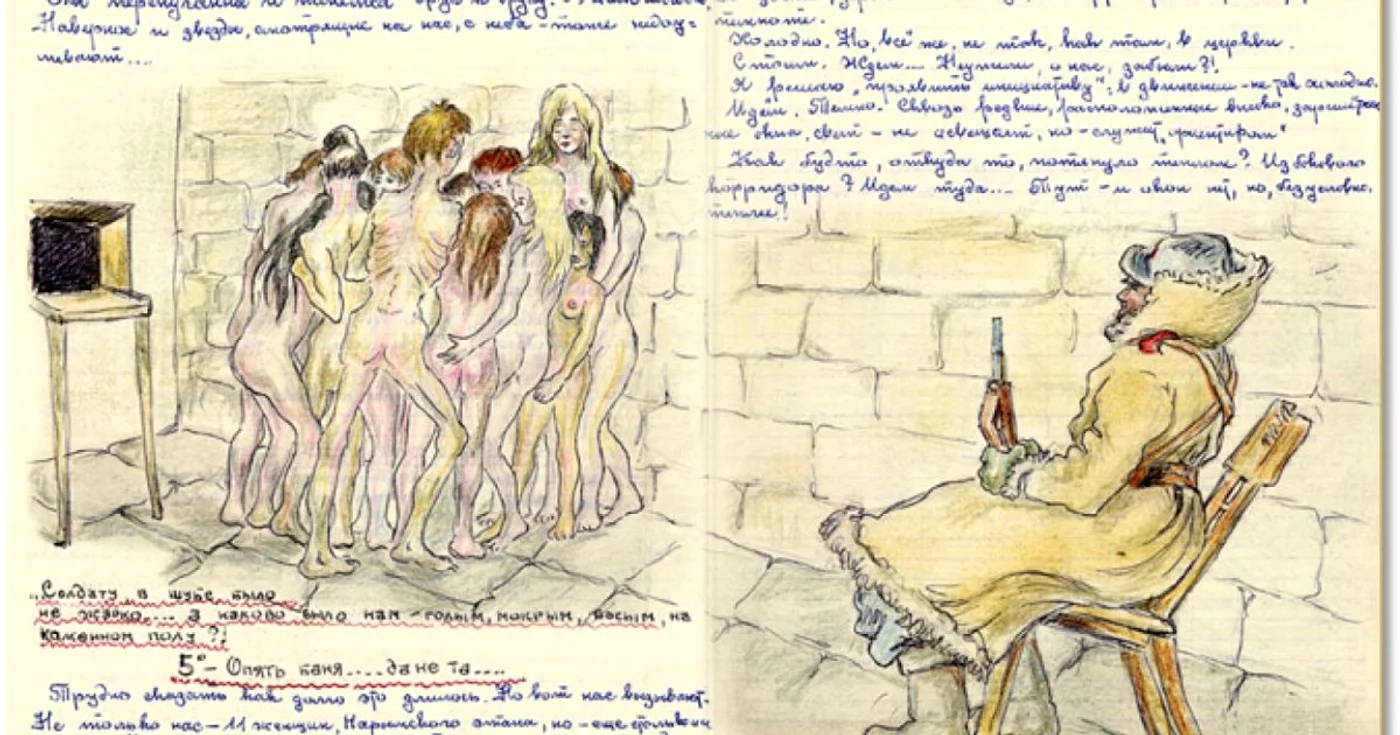 Наверное и звезды, смотрящие на нас, с неба – тоже недоу-
мевают....
„Солдату в шубе было
не жарко.... а каково было нам – голым, мокрым, босым, на
каменном полу?!
5° – Опять баня.....да не та....
Трудно сказать как долго это длилось. Но вот нас вызывают.
Не только нас – 11 женщин, Нарымского этапа, но – еще
темноте.
Холодно. Но, всё же, не так, как там, в церкви.
Стоим. Ждем.... Неужели, о нас, забыли?!
Я решаю „проявить инициативу": в движении – не так холодно.
Идем. Темно. Сквозь редкие, расположенные высоко, зарешёчен
ные окна, свет – не освещает, но – служит „ориентиром"
Как будто, откуда то, потянуло теплом? Из бокового
корридора? Идем туда.... Тут – и окон нет, но, безусловно,
теплее!